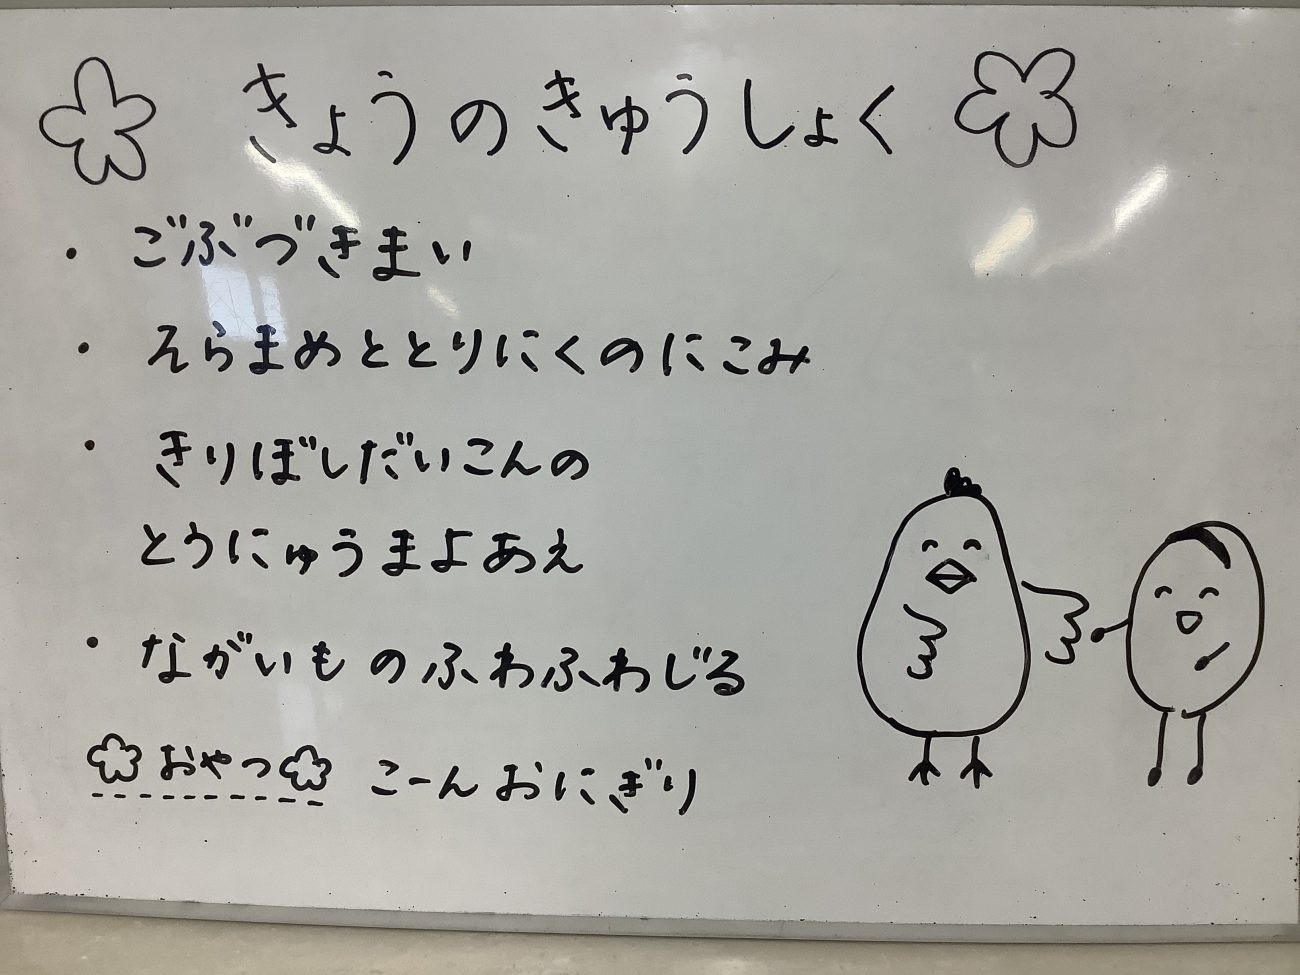 きょうのきゅうしょく
・ ごぶづきまい
・ そらまめととりにくのにこみ
・ きりぼしだいこんの
とうにゅうまよあえ
・ ながいものふわふわじる
おやつ こーんおにぎり